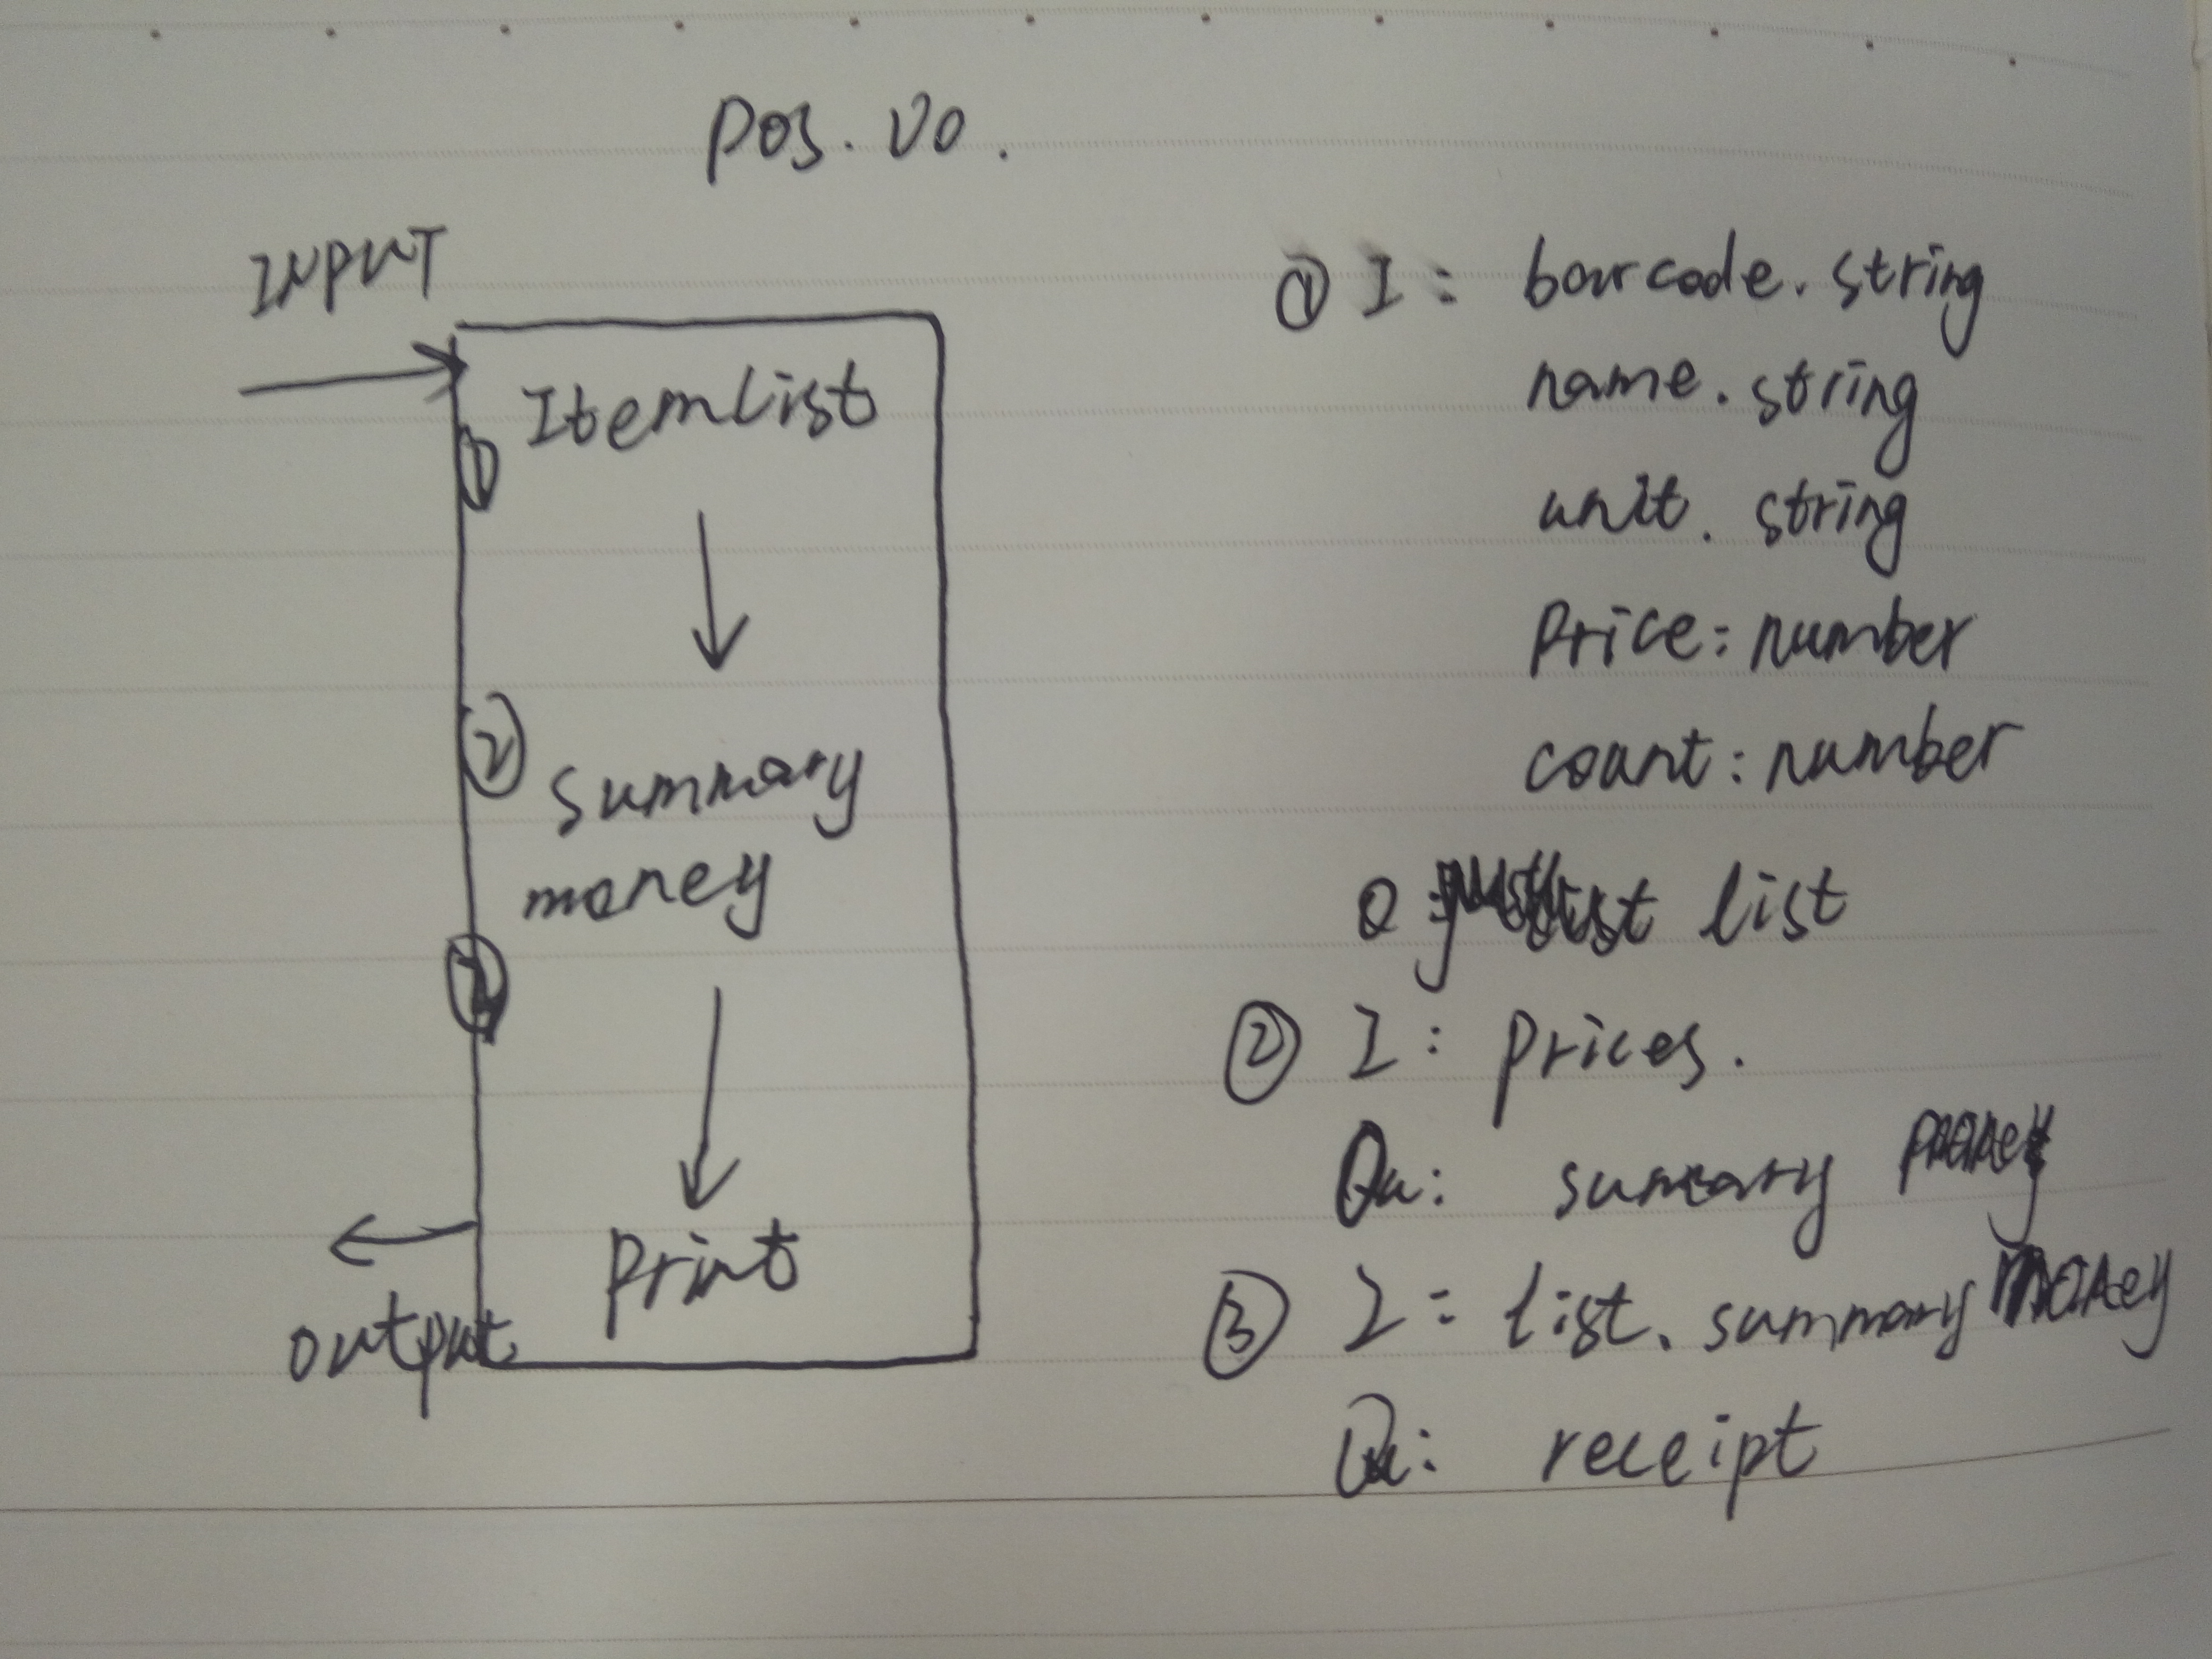 Pos. V0.
INPUT
ItemList
①
②
summary
money
Print
output
① I : barcode. string
name. string
unit. string
Price: number
count: number
O : list
② I : prices.
Ou: summary money
③ I : list. summary money
Ou: receipt